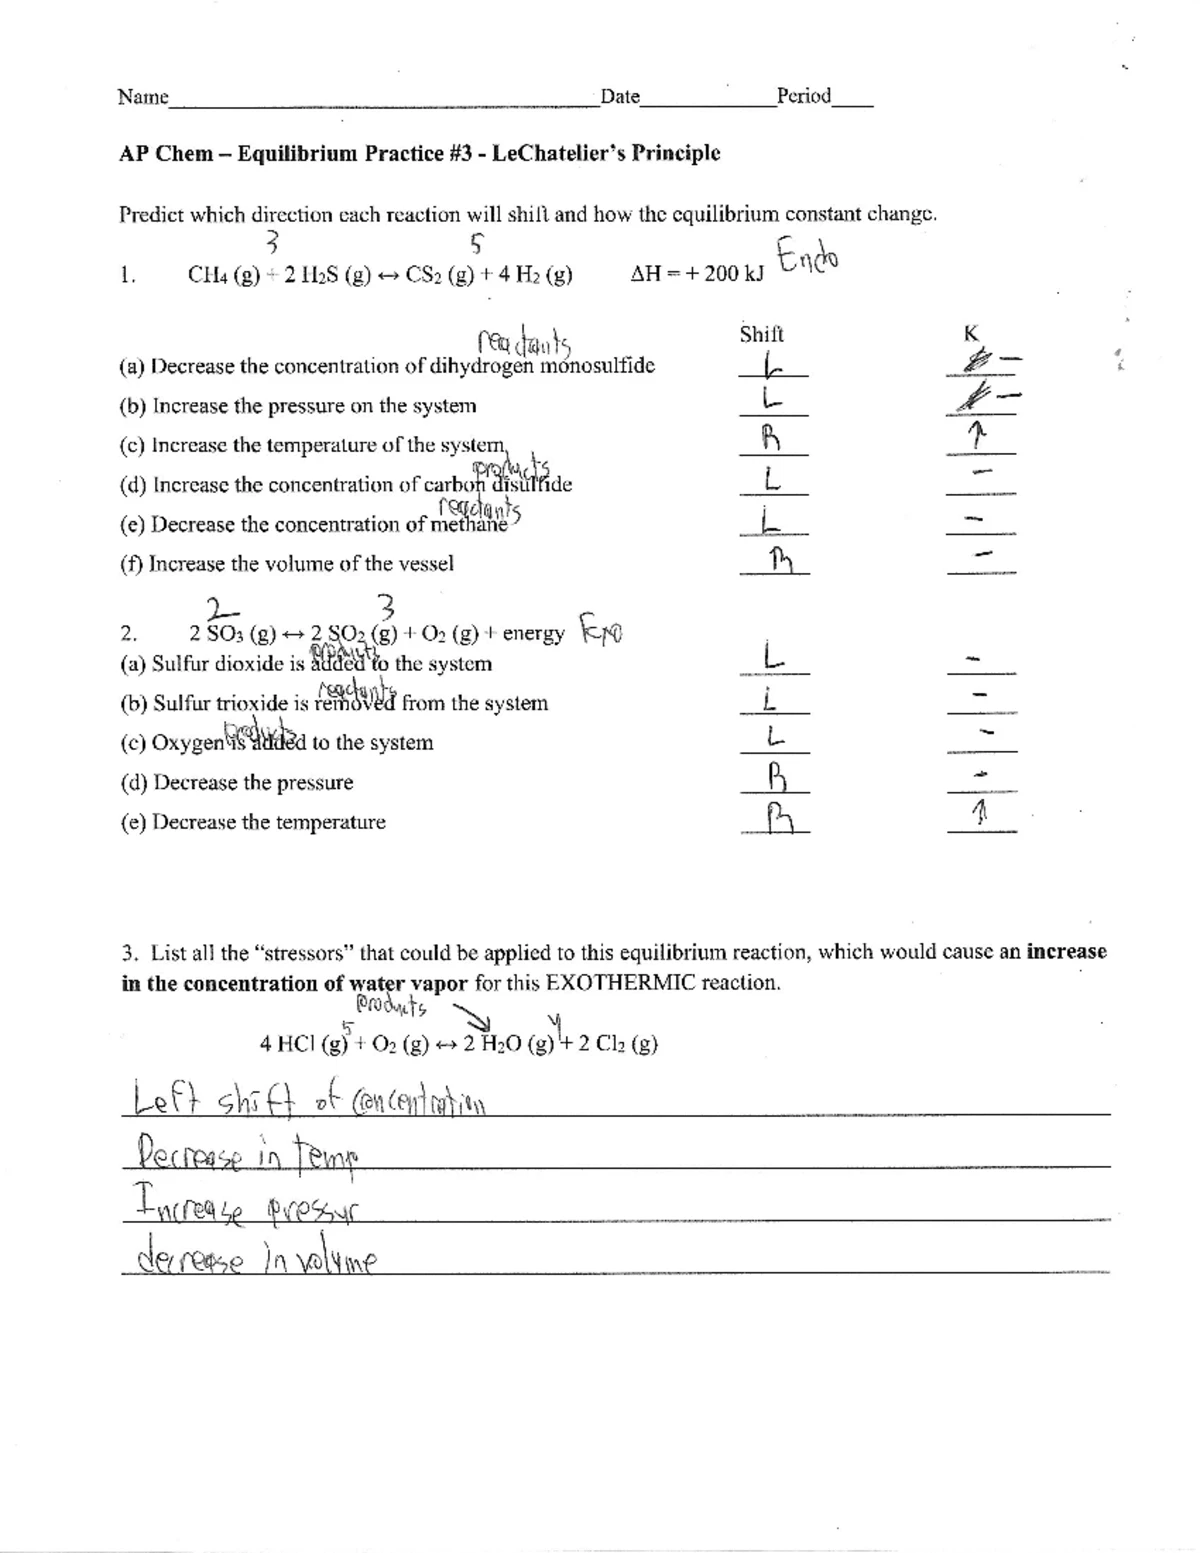 Name Date Period
AP Chem – Equilibrium Practice #3 - LeChatelier's Principle
Predict which direction each reaction will shift and how the equilibrium constant change.
3 5
1. CH4 (g) + 2 H2S (g) ↔ CS2 (g) + 4 H2 (g) ΔH = + 200 kJ Endo
reactants Shift K
(a) Decrease the concentration of dihydrogen monosulfide L –
(b) Increase the pressure on the system L –
(c) Increase the temperature of the system, R ↑
products
(d) Increase the concentration of carbon disulfide L –
reactants
(e) Decrease the concentration of methane L –
(f) Increase the volume of the vessel R –
2 3
2. 2 SO3 (g) ↔ 2 SO2 (g) + O2 (g) + energy Exo
products
(a) Sulfur dioxide is added to the system L –
reactants
(b) Sulfur trioxide is removed from the system L –
products
(c) Oxygen is added to the system L –
(d) Decrease the pressure R –
(e) Decrease the temperature R ↑
3. List all the “stressors” that could be applied to this equilibrium reaction, which would cause an increase
in the concentration of water vapor for this EXOTHERMIC reaction.
products
5 4
4 HCl (g) + O2 (g) ↔ 2 H2O (g) + 2 Cl2 (g)
Left shift of concentration
Decrease in temp
Increase pressur
decrease in volume